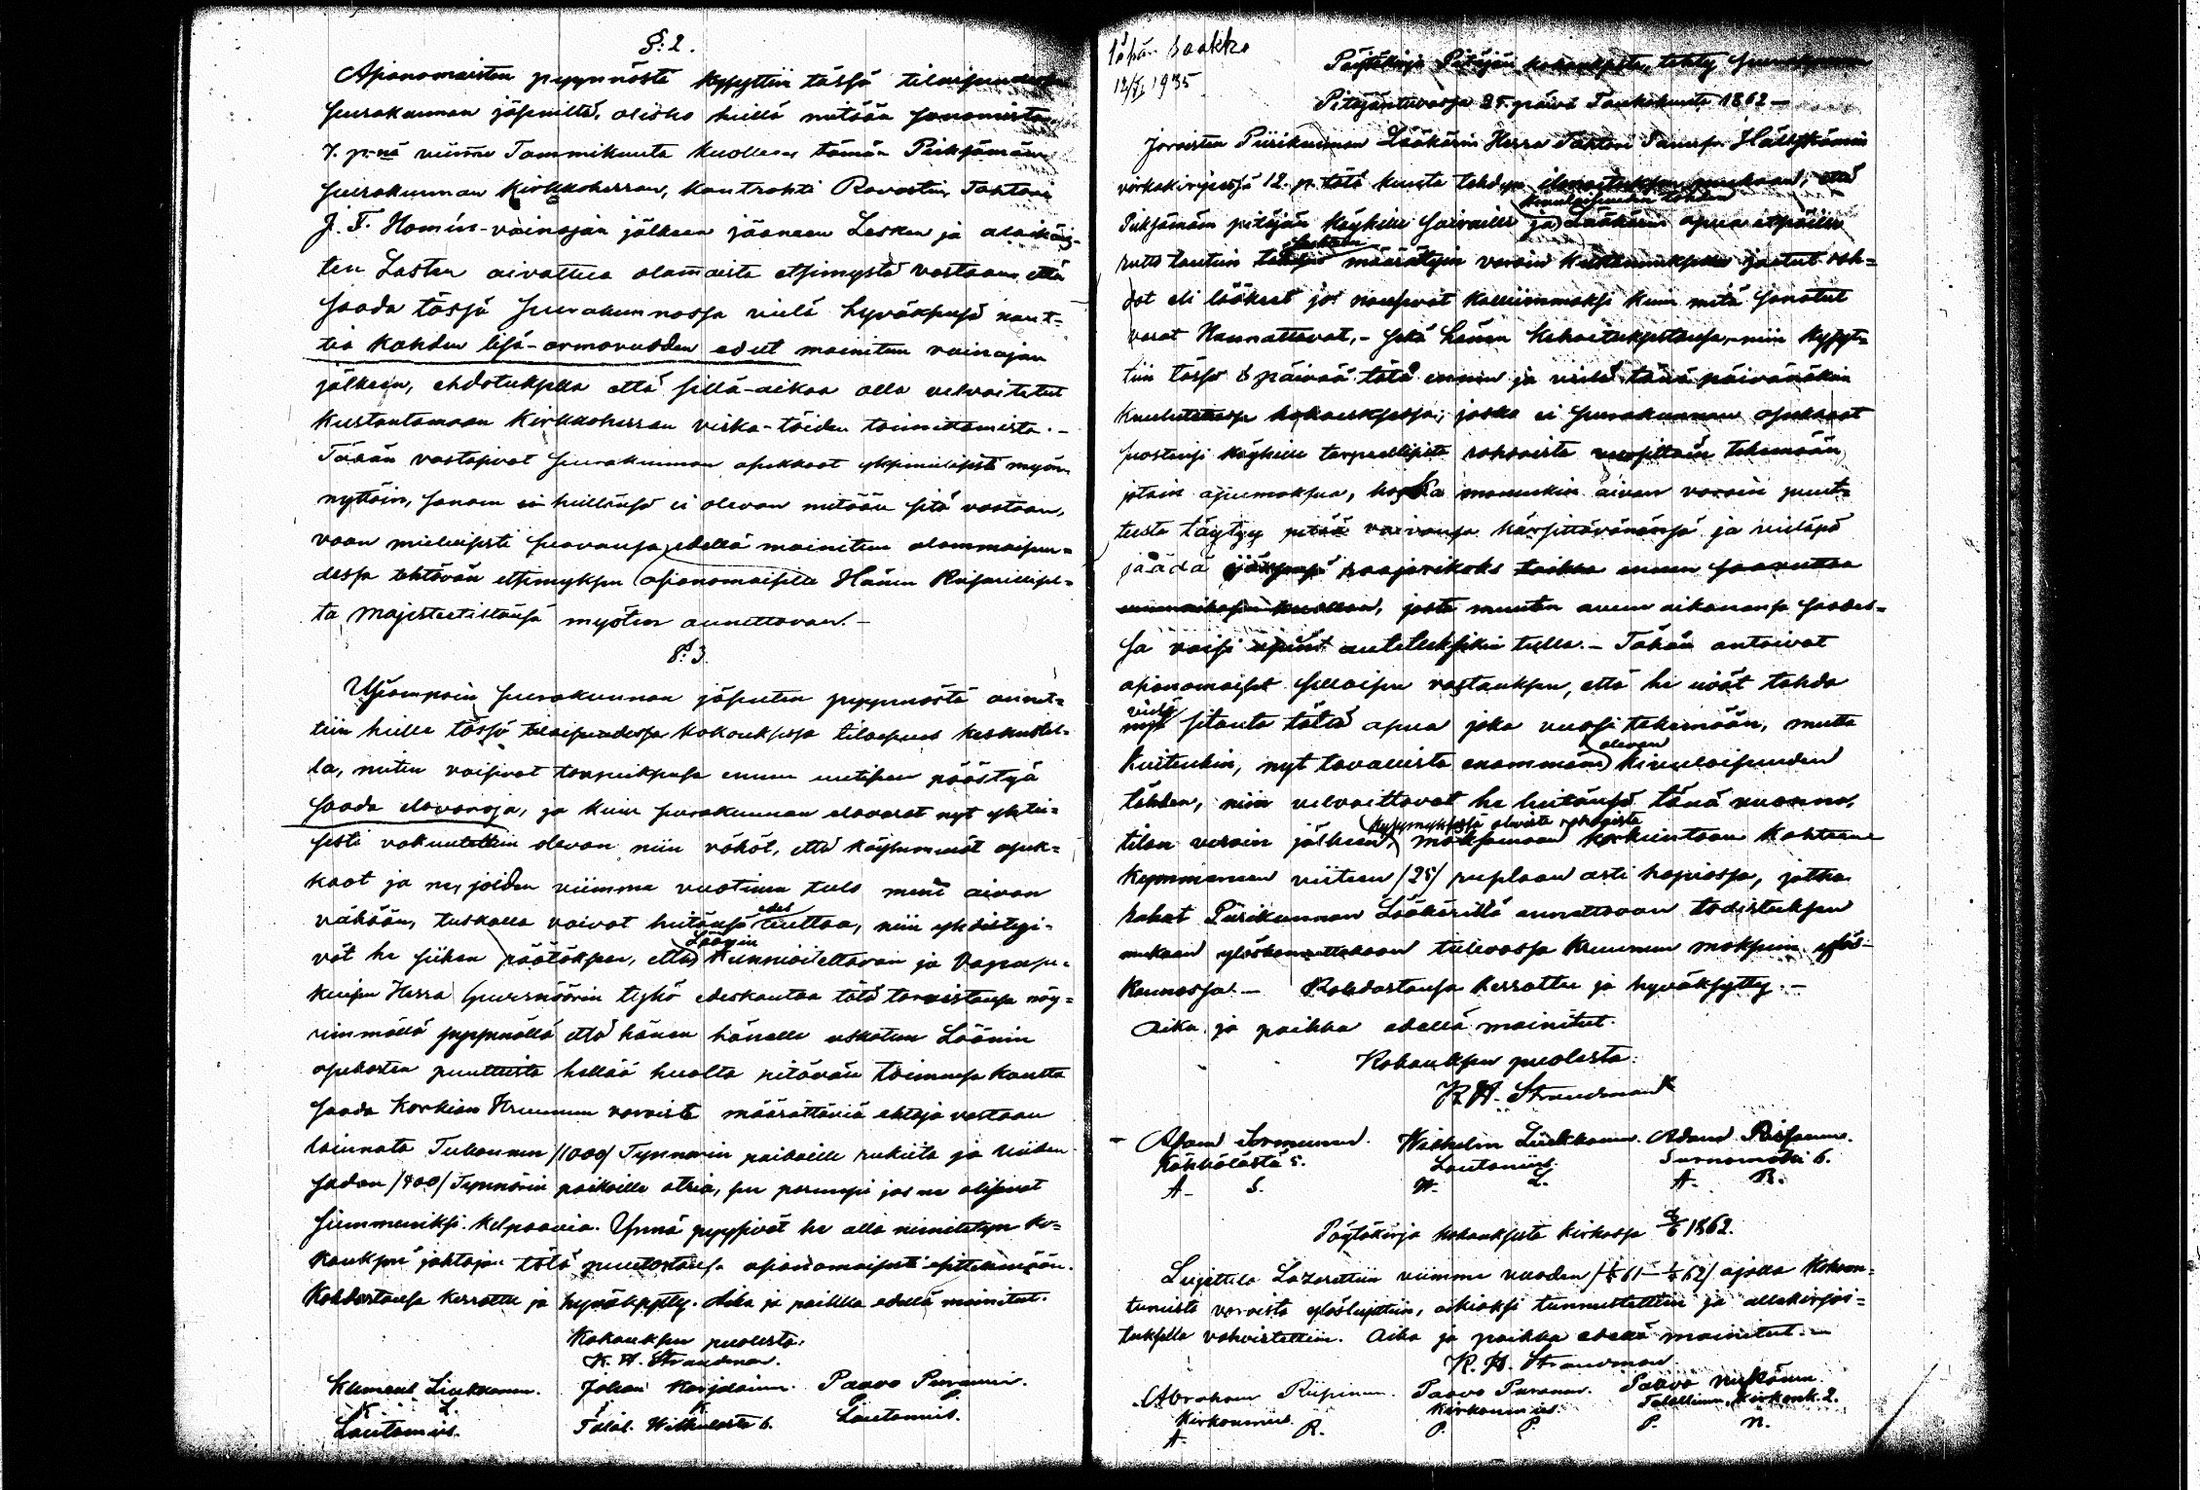 §: 2.
Asianomaisten pyynnöstä kysyttiin tässä tilaisuudessa
seurakunnan jäseniltä, olisko heillä mitään sanomista
7. p:nä viime Tammikuuta kuolleen tämän Pieksämäen
seurakunnan Kirkkoherran, kontrahti Rovastin, Tohtori
J. F. Homín-vainajan jälkeen jääneen Lesken ja alaikäis-
ten Lasten aivottua alamaista etsimystä vastaan, että
saada tässä seurakunnassa vielä hyväksensä naut-
tia kahden lisä-armovuoden edut mainitun vainajan
jälkeen, ehdotuksella että sillä-aikaa olla velvoitetut
kustantamaan Kirkkoherran virka-töiden toimittamista. -
Tähän vastasivat seurakunnan asukkaat yksimielisesti myön-
nyttäin, sanoen ei heillänsä ei olevan mitään sitä vastaan,
vaan mieluisesti suovansa edellä mainitun alammaisuu-
dessa tehtävän etsimyksen asianomaisille Hänen Keisarillise-
ta Majesteetistansa myöten annettavan. -
§: 3.
Useampain seurakunnan jäsenten pyynnöstä annet-
tiin heille tässä tilaisuudessa kokouksessa tilaisuus keskustel-
la, miten voisivat tarpeeksensa ennen uutisen päästyä
saada elovaroja, ja kuin seurakunnan elovarat nyt yhtei-
sesti vakuutettiin olevan niin vähät, että köyhemmät asuk-
kaat ja ne, joiden viimme vuotinen tulo meni aivan
vähään, tuskalla voivat heitänsä edes elättää, niin yhdistyi-
vät he siihen päätökseen, että Läänin Kunnioitettavan ja Vapasu-
kuisen Herra Guvernöörin tykö edeskantaa tätä tarvistansa nöy-
rimmällä pyynnöllä että hänen hänelle uskotun Läänin
asukasten puutteista hellää huolta pitävän toimensa kautta
saada Korkian Kruunun varoista määrättäviä ehtoja vastaan
lainata Tuhannen /1000/ Tynnörin paikoille rukiita ja Neljän-
sadan /400/ Tynnörin paikoille otria, sen parempi jos ne olisivat
siemmeniksi kelpaavia. Ynnä pyysivät he alla nimitetyn ko-
kouksen johtajan tätä puutostansa asianomaisesti esittelemään.
Kohdastansa kerrottu ja hyväksytty. Aika ja paikka edellä mainitut.
Kokouksen puolesta.
K. H. Strandman.
Klemens Liukkonen. Johan Karjalainen. Paavo Puranen.
K. L. J. K. P. P.
Lautamies. Talol. Lautamies.
Tähän saakka
12/X 1935
Pöytäkirja Pitäjän kokouksesta, tehty
Pitäjäntuvassa 25. päivä Toukokuuta 1862 -
Joroisten Piirikunnan Lääkärin Herra Tohtori
virkakirjeessä 12. p. tätä kuuta tehdyn ilmoituksen mukaan, että
kivuloisuuden tähden
Pieksämäen pitäjän köyhille sairaille ja Lääkärin apua etsiville
tautiin määrätyin varoin kustannuksella jaetut roh-
dot eli lääkeet jo nousevat kalliimmaksi kuin mitä sanotut
varat kannattavat, - sekä hänen kehoituksestansa, - niin kysyt-
tiin tässä 8 päivää tätä ennen ja vielä tänä päivänäkin
kuulutetussa kokouksessa, joska ei seurakunnan asukkaat
suostuisi köyhille tarpeellisista rohdoista vuosittain tekemään
jotain apumaksua, koska monenkin aivan varain puut-
teesta täytyy pitää vaivansa kärsittävänänsä ja vieläpä
jäädä raajarikoks taikka ennen saavuttaa
kuolean, josta muuten avun aikananssa saades-
sa voisi autetuksikin tulla. - Tähän antoivat
asianomaiset sellaisen vastauksen, että he eivät tahdo
vielä
nyt sitauta tätä apua joka vuosi tekemään, mutta
kuitenkin, nyt tavallista enemmän olevan kivuloisuuden
tähden, niin velvoittavat he heitänsä tänä vuonna,
kysymyksessä olevista rohdoista
tilan veroin jälkeen, maksamaan korkeintaan kahteen
kymmeneen viiteen /25/ ruplaan asti hopiassa, jotka
rahat Piirikunnan Lääkäriltä annettavan todistuksen
mukaan ylöskannettakoon tulevassa Kruunun maksuin ylös-
kannossa. - Kohdastansa kerrottu ja hyväksytty. -
Aika ja paikka edellä mainitut.
Kokouksen puolesta:
K. H. Strandman
Adam Sormunen. Wilhelm Liukkonen. Adam
Lautamies.
A. S. W. L. A. R.
Pöytäkirja kokouksesta Kirkossa 1862.
Lujettelo Lazarettiin viimme vuoden /61 - 62/ ajalla kokoon-
tuneista varoista ylösluettiin, oikiaksi tunnustettiin ja allekirjoi-
tuksella vahvistettiin. Aika ja paikka edellä mainitut. -
K. H. Strandman
Abraham Riipinen. Paavo Puranen. Paavo
Kirkonmies. Kirkonmies. Talollinen, Kirkonk. 2.
A. R. P. P. P. N.